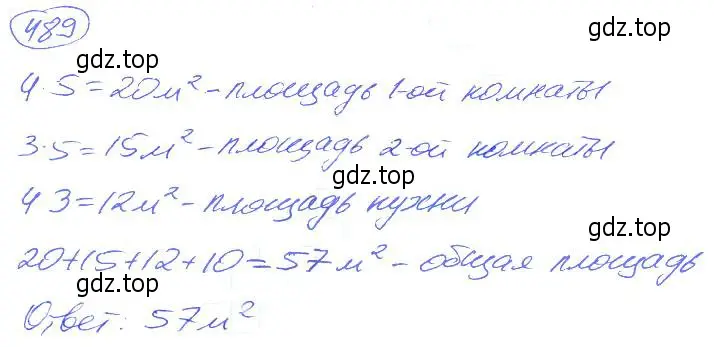 489 гдз.top
гдз.top
4·5=20м² - площадь 1-ой комнаты
3·5=15м² - площадь 2-ой комнаты
гдз.top
4 3=12м² - площадь кухни
гдз.top
20+15+12+10=57м² - общая площадь
Ответ: 57м²
гдз.top